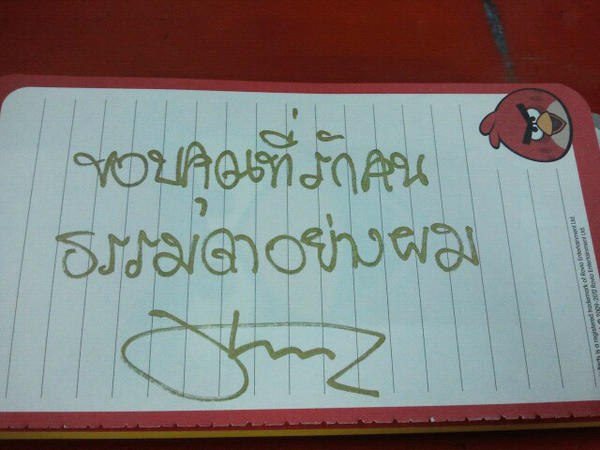 ขอบคุณที่รักคน
ธรรมดาอย่างผม
is a registered trademark of Rovio Entertainment Ltd.
© 2009-2012 Rovio Entertainment Ltd.